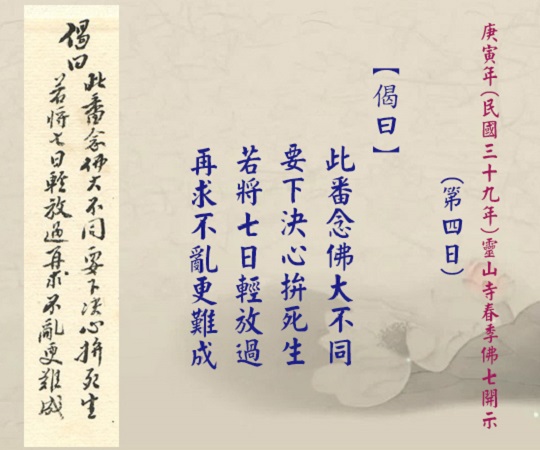 庚寅年(民國三十九年)靈山寺春季佛七開示
(第四日)
【偈曰】
此番念佛大不同
要下決心拚死生
若將七日輕放過
再求不亂更難成
偈曰
此番念佛大不同要下決心拚死生
若將七日輕放過再求不亂更難成